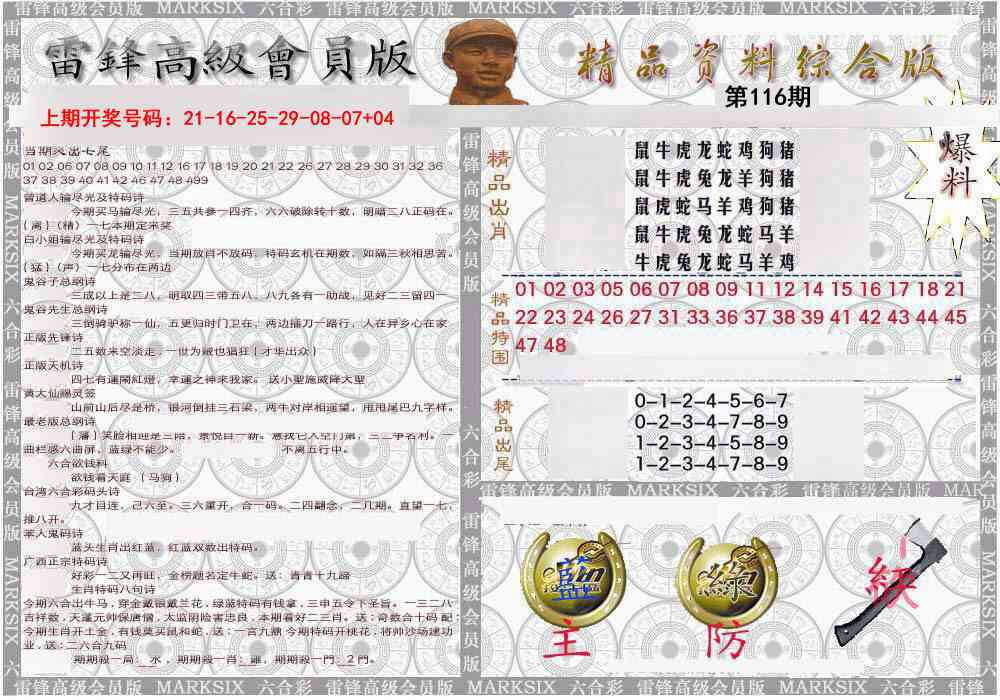 雷鋒高級會員版
精品资料综合版
第116期
上期开奖号码：21-16-25-29-08-07+04
爆料
当期义出七尾
01 02 06 07 08 09 10 11 12 16 17 18 19 20 21 22 26 27 28 29 30 31 32 36
37 38 39 40 41 42 46 47 48 499
曾道人输尽光及特码诗
今期买马输尽光，三五共參一四齐，六六破除转十数，明瞄二八正码在。
（离）（精）一七本期定来奖
白小姐输尽光及特码诗
今期买龙输尽光，当期放肖不放码，特码玄机在期数，如隔三秋相思苦。
（猛）（声）一七分布在两边
鬼谷子总纲诗
三成以上是二八，明取四三带五八，八九备有一助战，见好二三留四一
鬼谷先生总纲诗
三倒骑驴称一仙，五更归时门卫在，两边插刀一路行，人在异乡心在家
正版先锋诗
二五数来空淡走，一世为贼也猖狂（才华出众）
正版天机诗
四七有運閙紅燈，幸運之神来我家。 送小聖施威降大聖
黄大仙赐灵签
山前山后尽是桥，银河倒挂三石梁，两牛对岸相遥望，甩甩尾巴九字样。
最老版总纲诗
曲栏感六曲屏，蓝绿不能少。 不离五行中。
六合欲钱料
欲钱看天庭 （马狗）
台湾六合彩码头诗
九才目连，己六至。三六重开，合一码。二四翻念，二几期。直望一七，
推八开。
本人鬼码诗
蓝头生肖出红蓝，红蓝双数出特码。
广西正宗特码诗
好彩一二又再旺，金榜题名定牛蛇。送：青青十九蹈
生肖特码八句诗
今期六合出牛马，穿金戴银戴兰花，绿蓝特码有钱拿，三申五令下圣旨。一三二八
吉祥数，天蓬元帅保唐僧，太监阴险害忠良，本期看好二三肖。送：奇数合十码 配：
今期生肖开土金，有钱莫买鼠和蛇，送：一言九鼎 今期特码开桃花，将帅沙场建功
业，送：二六合九码
期期殺一局：水 ，期期殺一肖：雞，期期殺一門：2門。
精品出肖
鼠牛虎龙蛇鸡狗猪
鼠牛虎兔龙羊狗猪
鼠虎蛇马羊鸡狗猪
鼠牛虎兔龙蛇马羊
牛虎兔龙蛇马羊鸡
精品特围
01 02 03 05 06 07 08 09 11 12 14 15 16 17 18 21
22 23 24 26 27 31 33 36 37 38 39 41 42 43 44 45
47 48
精品出尾
0-1-2-4-5-6-7
0-2-3-4-7-8-9
1-2-3-4-5-8-9
1-2-3-4-7-8-9
藍
主
綠
防
紅